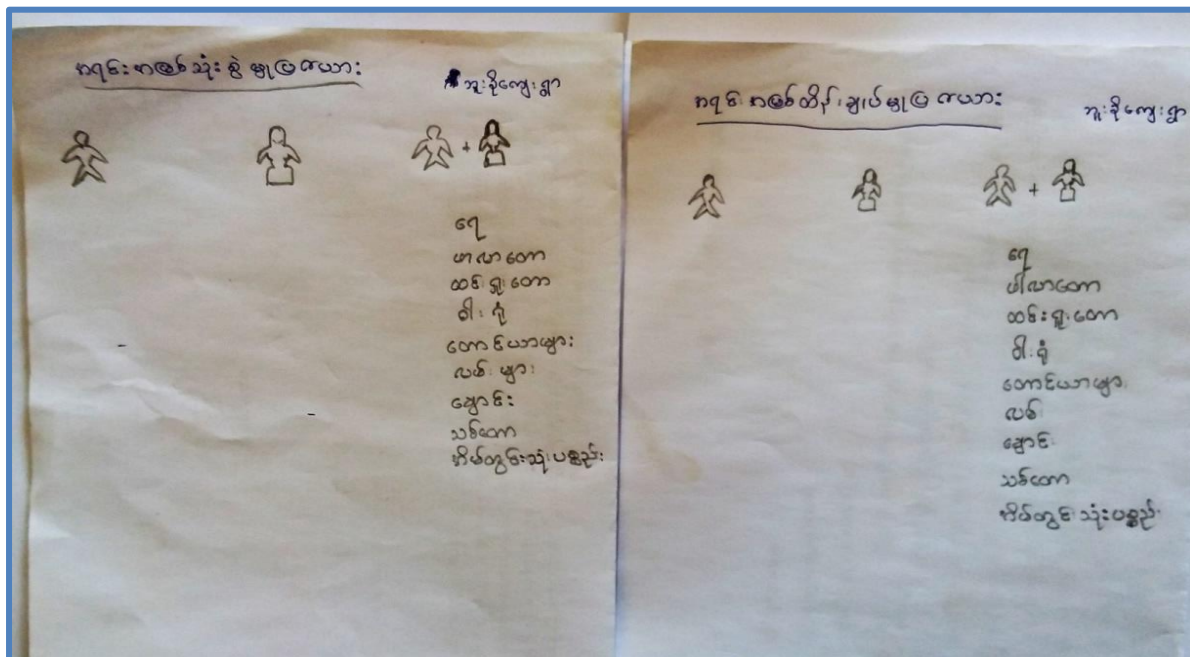 အရင်းအမြစ်သုံးစွဲမှုပြဇယား
ဘူးခိုကျေးရွာ
+
ရေ
ဖာလာတော
ထင်းရှူးတော
ဝါးရုံ
တောင်ယာများ
လမ်းများ
ချောင်း
သစ်တော
အိမ်တွင်းသုံးပစ္စည်း
အရင်းအမြစ်ထိန်းချုပ်မှုပြဇယား
ဘူးခိုကျေးရွာ
+
ရေ
ဖါလာတော
ထင်းရှူးတော
ဝါးရုံ
တောင်ယာများ
လမ်း
ချောင်း
သစ်တော
အိမ်တွင်းသုံးပစ္စည်း